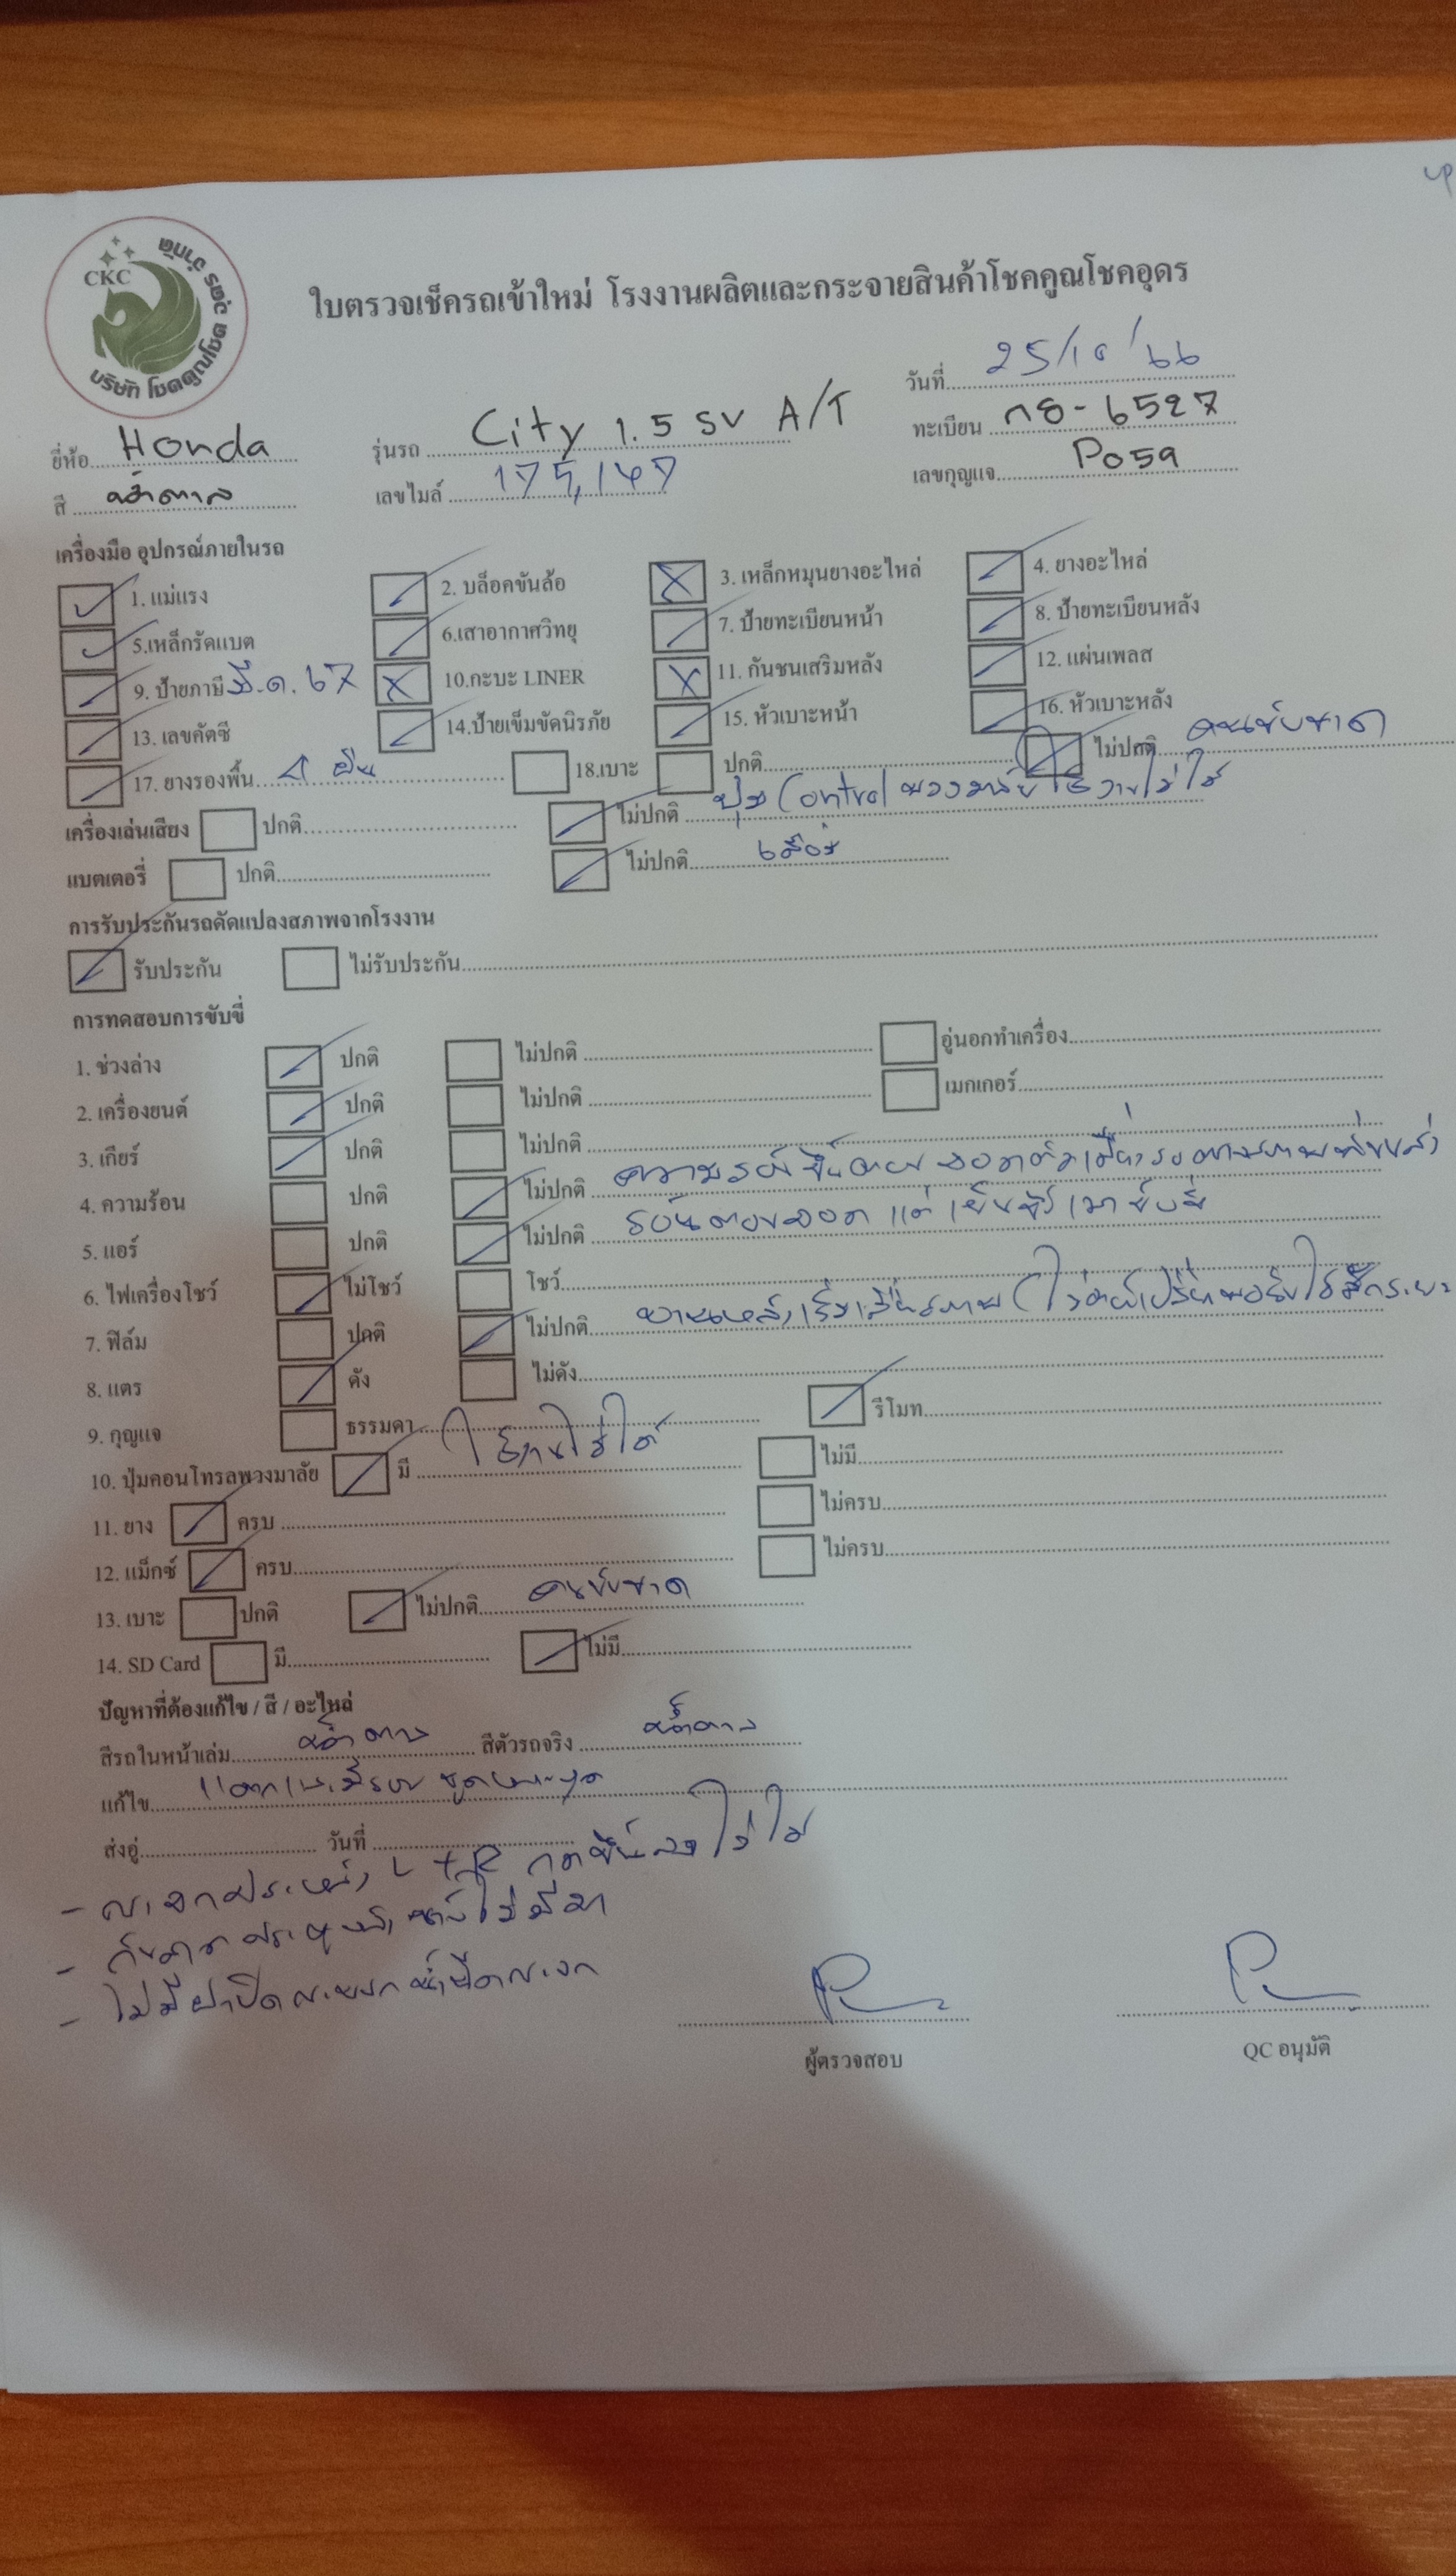 CKC
บริษัท โชคคูณโชค อุดร จำกัด
ใบตรวจเช็ครถเข้าใหม่ โรงงานผลิตและกระจายสินค้าโชคคูณโชคอุดร
วันที่ 25/10/66
ยี่ห้อ Honda รุ่นรถ City 1.5 SV A/T ทะเบียน กธ-6527
สี น้ำตาล เลขไมล์ 175,147 เลขกุญแจ P059
เครื่องมือ อุปกรณ์ภายในรถ
1. แม่แรง 2. บล็อคขันล้อ 3. เหล็กหมุนยางอะไหล่ 4. ยางอะไหล่
5.เหล็กรัดแบต 6.เสาอากาศวิทยุ 7. ป้ายทะเบียนหน้า 8. ป้ายทะเบียนหลัง
9. ป้ายภาษี มี.ค. 67 10.กะบะ LINER 11. กันชนเสริมหลัง 12. แผ่นเพลส
13. เลขคัตซี 14.ป้ายเข็มขัดนิรภัย 15. หัวเบาะหน้า 16. หัวเบาะหลัง
17. ยางรองพื้น 4 ผืน 18.เบาะ ปกติ ไม่ปกติ คนขับขาด
เครื่องเล่นเสียง ปกติ ไม่ปกติ ปุ่ม Control พวงมาลัยใช้งานไม่ได้
แบตเตอรี่ ปกติ ไม่ปกติ เสื่อม
การรับประกันรถดัดแปลงสภาพจากโรงงาน
รับประกัน ไม่รับประกัน
การทดสอบการขับขี่
1. ช่วงล่าง ปกติ ไม่ปกติ อู่นอกทำเครื่อง
2. เครื่องยนต์ ปกติ ไม่ปกติ เมกเกอร์
3. เกียร์ ปกติ ไม่ปกติ
4. ความร้อน ปกติ ไม่ปกติ ความร้อนขึ้นตอนจอด
5. แอร์ ปกติ ไม่ปกติ ร้อนตอนจอด แต่เย็น
6. ไฟเครื่องโชว์ ไม่โชว์ โชว์
7. ฟิล์ม ปกติ ไม่ปกติ บานหลังเริ่มเสื่อมสภาพ
8. แตร ดัง ไม่ดัง
9. กุญแจ ธรรมดา รีโมท
10. ปุ่มคอนโทรลพวงมาลัย มี ใช้งานไม่ได้ ไม่มี
11. ยาง ครบ ไม่ครบ
12. แม็กซ์ ครบ ไม่ครบ
13. เบาะ ปกติ ไม่ปกติ คนขับขาด
14. SD Card มี ไม่มี
ปัญหาที่ต้องแก้ไข / สี / อะไหล่
สีรถในหน้าเล่ม น้ำตาล สีตัวรถจริง น้ำตาล
แก้ไข
ส่งอู่ วันที่
- L+R กดขึ้นลงไม่ได้
- ไม่มีมา
- ไม่มีฝาปิด
ผู้ตรวจสอบ QC อนุมัติ